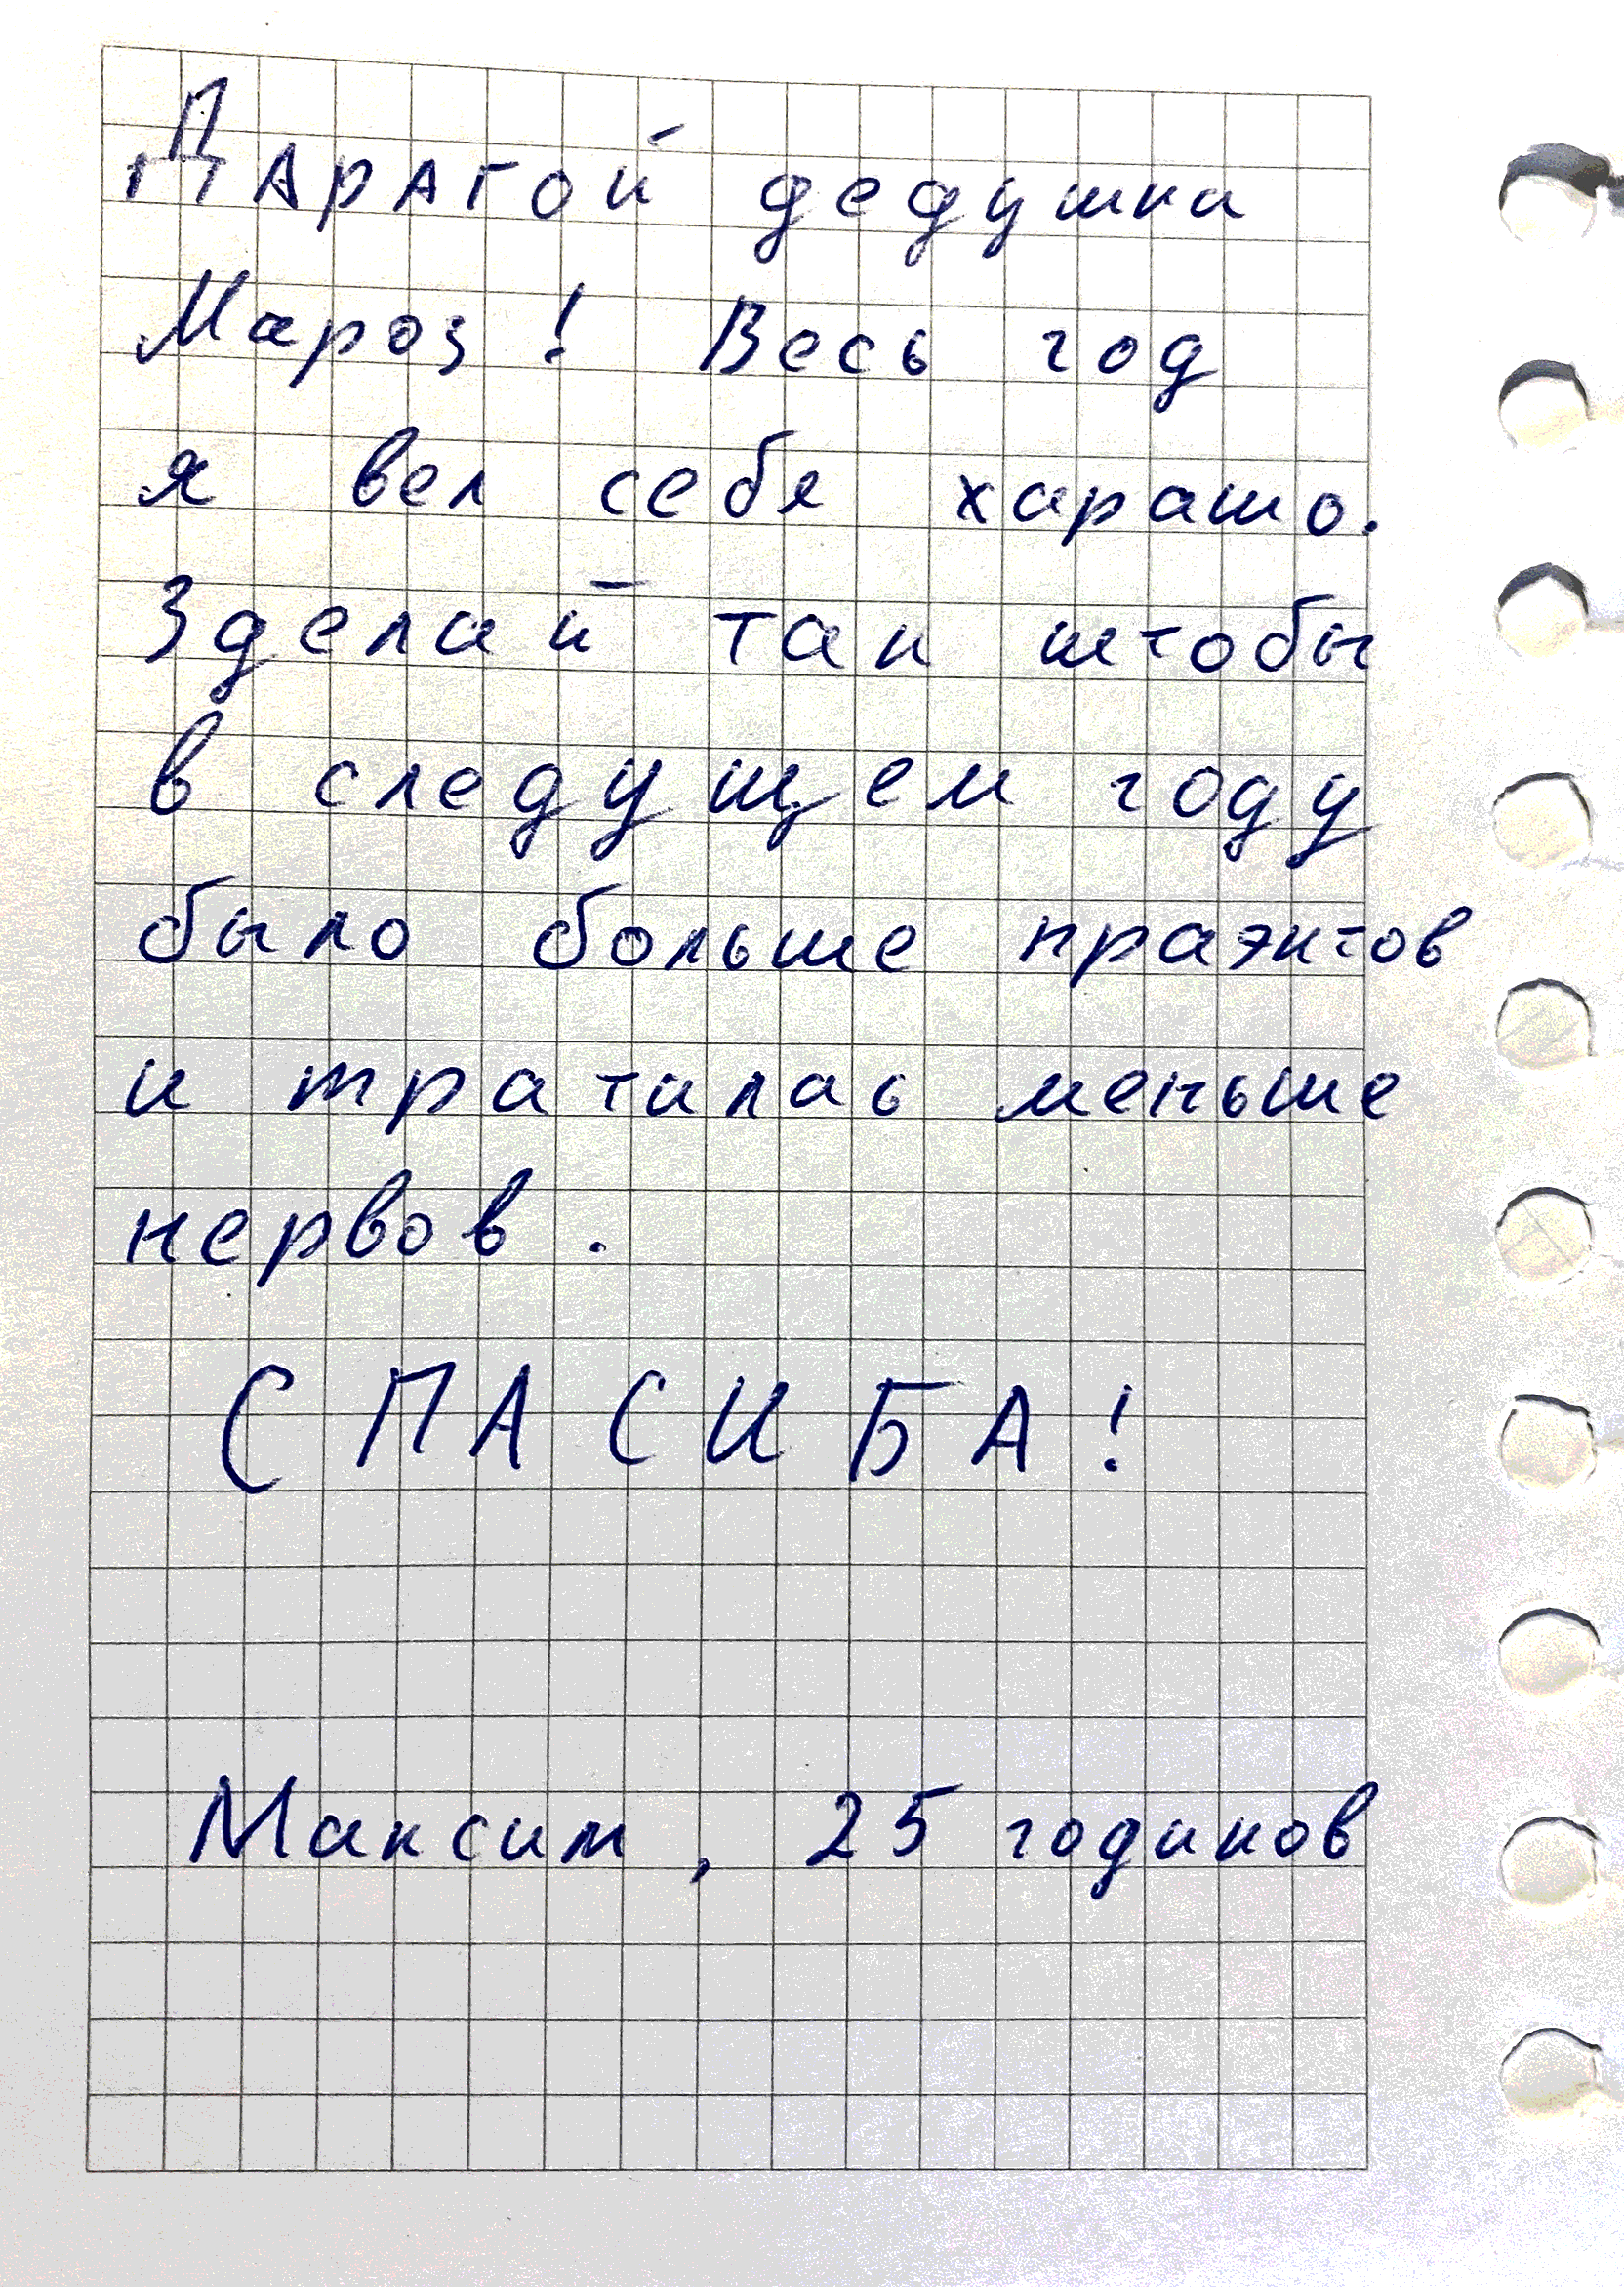 ДАрАгой дедушка
Мароз! Весь год
я вел себя харашо.
Зделай так штобы
в следущем году
было больше праэктов
и тратилась меньше
нервов.
СПАСИБА!
Максим, 25 годиков